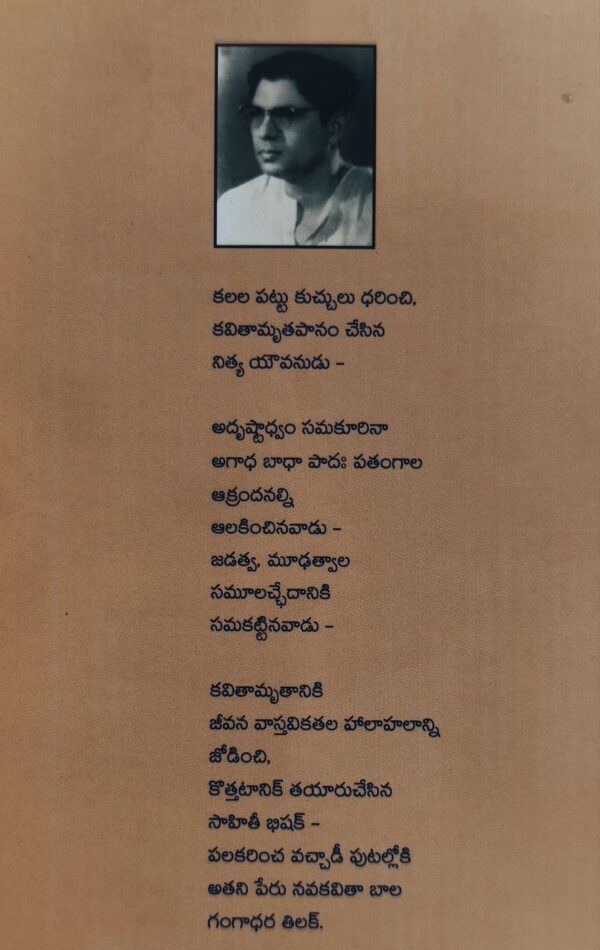 కలల పట్టు కుచ్చులు ధరించి,
కవితామృతపానం చేసిన
నిత్య యౌవనుడు -
అదృష్టాధ్వం సమకూరినా
అగాధ బాధా పాదః పతంగాల
ఆక్రందనల్ని
ఆలకించినవాడు -
జడత్వ, మూఢత్వాల
సమూలచ్ఛేదానికి
సమకట్టినవాడు -
కవితామృతానికి
జీవన వాస్తవికతల హాలాహలాన్ని
జోడించి,
కొత్తటానిక్ తయారుచేసిన
సాహితీ భిషక్ -
పలకరించ వచ్చాడీ పుటల్లోకి
అతని పేరు నవకవితా బాల
గంగాధర తిలక్.